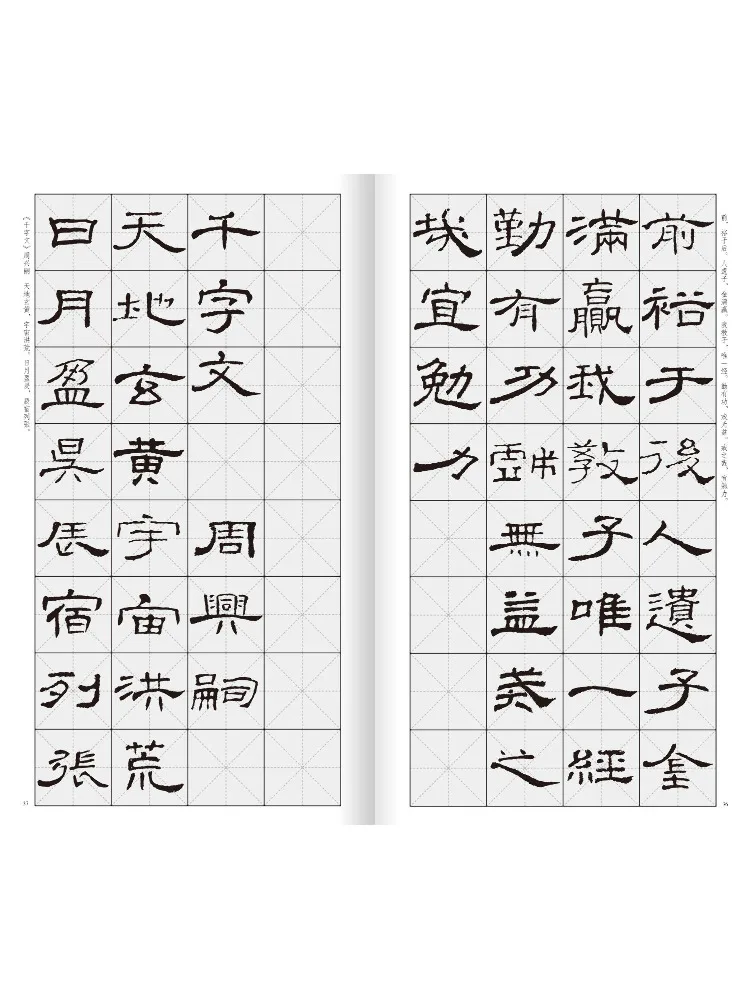 前，裕于后。人遗子，金满赢。我教子，唯一经。勤有功，戏无益。戒之哉，宜勉力。
前裕于後人遺子金
滿贏我敎子唯一經
勤有功戲無益戒之
哉宜勉力
千字文 周興嗣
天地玄黃宇宙洪荒
日月盈昃辰宿列張
《千字文》周兴嗣 天地玄黄，宇宙洪荒。日月盈昃，辰宿列张。